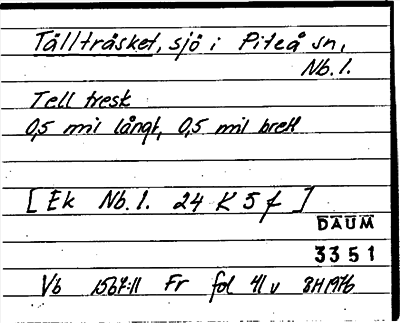 Tällträsket, sjö i Piteå sn,
Nb. l.
Tell tresk
0,5 mil långt, 0,5 mil brett
[Ek Nb. l. 24 K 5 f]
DAUM
3351
Vb 1567:11 Fr fol 41 v BH 1976